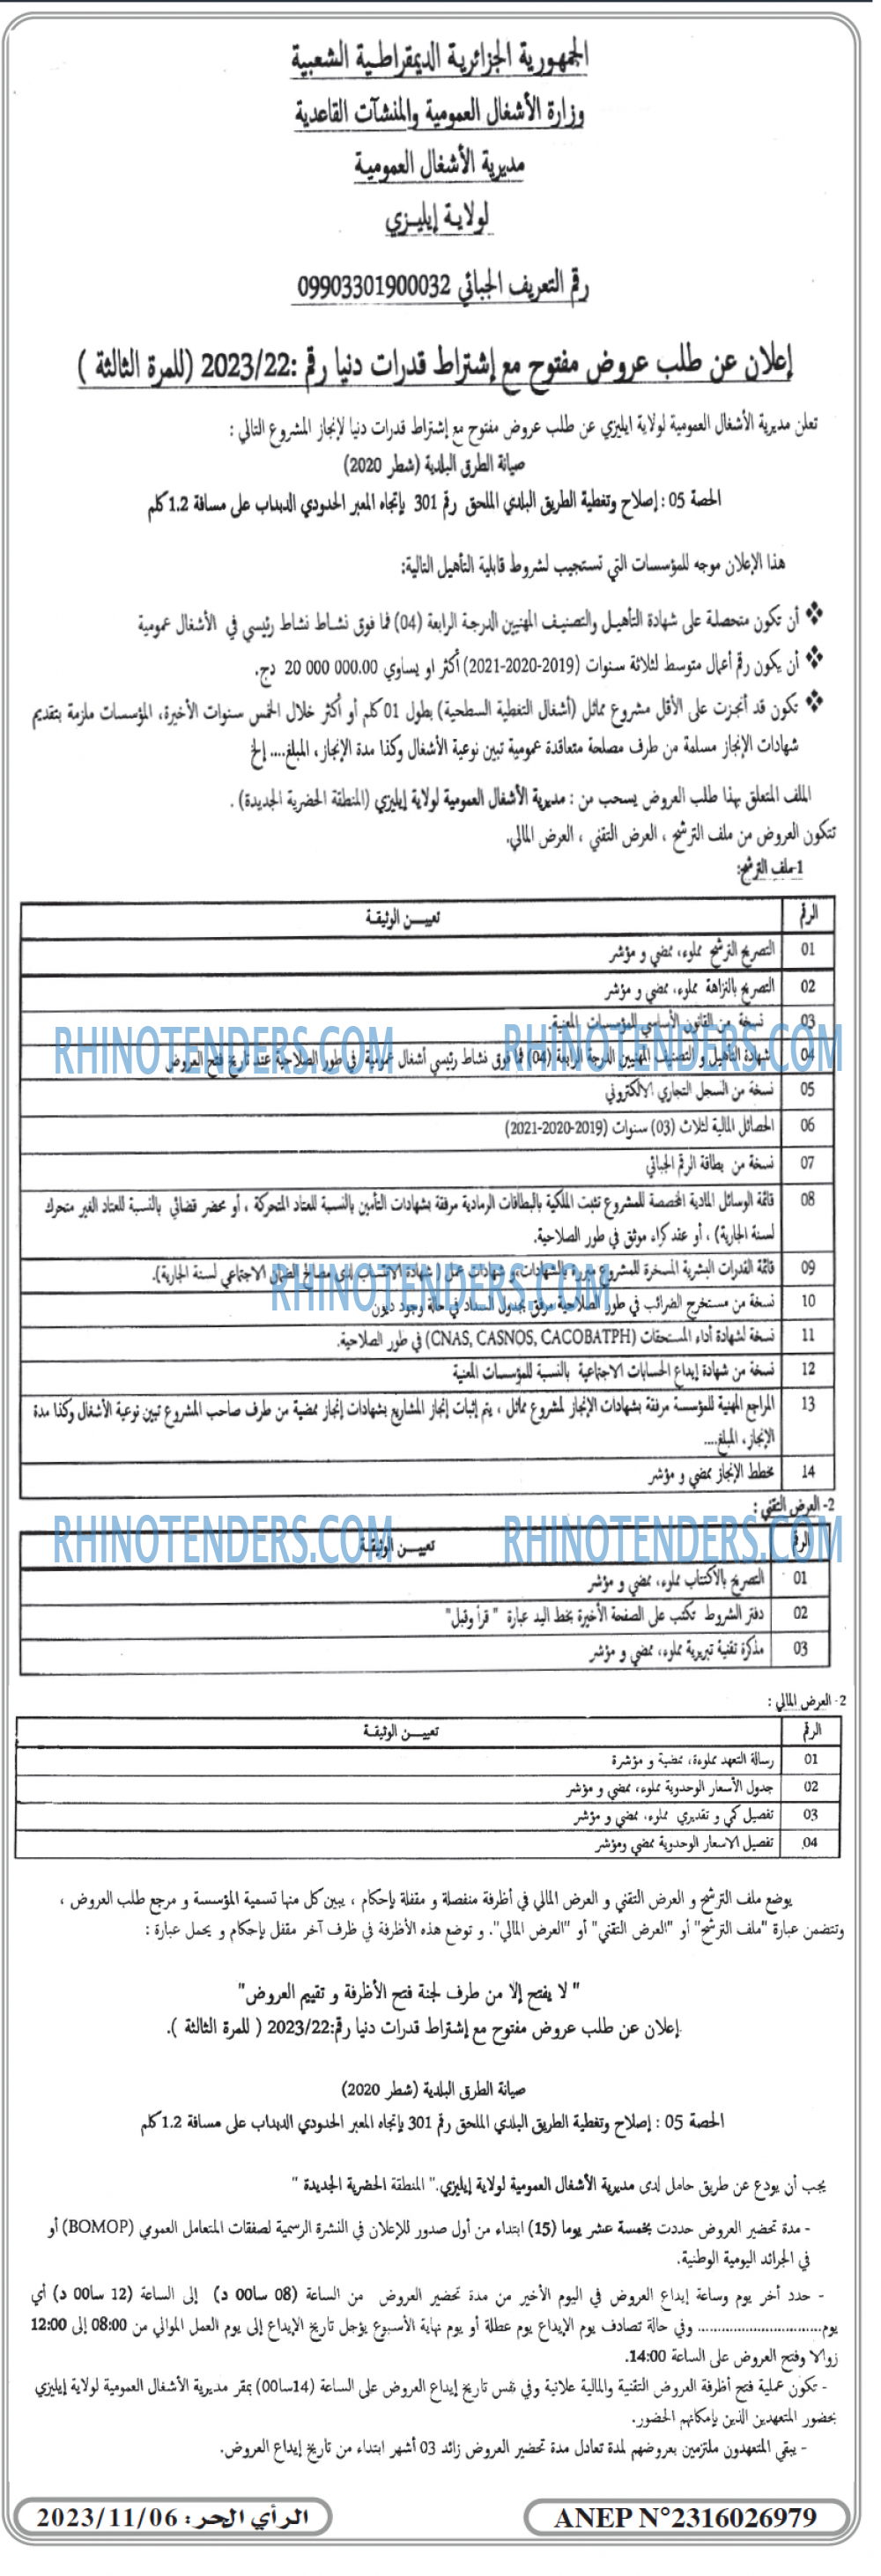 الجمهورية الجزائرية الديمقراطية الشعبية
وزارة الأشغال العمومية والمنشآت القاعدية
مديرية الأشغال العمومية
لولاية إيليزي
رقم التعريف الجبائي 09903301900032
إعلان عن طلب عروض مفتوح مع إشتراط قدرات دنيا رقم :2023/22 (للمرة الثالثة )
تعلن مديرية الأشغال العمومية لولاية ايليزي عن طلب عروض مفتوح مع إشتراط قدرات دنيا لإنجاز المشروع التالي :
صيانة الطرق البلدية (شطر 2020)
الحصة 05 : إصلاح وتغطية الطريق البلدي الملحق رقم 301 بإتجاه المعبر الحدودي الدبداب على مسافة 1.2كلم
هذا الإعلان موجه للمؤسسات التي تستجيب لشروط قابلية التأهيل التالية:
❖ أن تكون متحصلة على شهادة التأهيل والتصنيف المهنيين الدرجة الرابعة (04) فما فوق نشاط نشاط رئيسي في الأشغال عمومية
❖ أن يكون رقم أعمال متوسط لثلاثة سنوات (2019-2020-2021) أكثر او يساوي 20 000 000.00 دج.
❖ تكون قد أنجزت على الأقل مشروع مماثل (أشغال التغطية السطحية) بطول 01 كلم أو أكثر خلال الخمس سنوات الأخيرة، المؤسسات ملزمة بتقديم
شهادات الإنجاز مسلمة من طرف مصلحة متعاقدة عمومية تبين نوعية الأشغال وكذا مدة الإنجاز، المبلغ.... إلخ
الملف المتعلق بهذا طلب العروض يسحب من : مديرية الأشغال العمومية لولاية إيليزي (المنطقة الحضرية الجديدة) .
تتكون العروض من ملف الترشح ، العرض التقني ، العرض المالي.
1-ملف الترشح:
الرقم تعيين الوثيقة
01 التصريح الترشح مملوء، ممضي و مؤشر
02 التصريح بالنزاهة مملوء، ممضي و مؤشر
03 نسخة من القانون الأساسي للمؤسسات المعنية.
RHINOTENDERS.COM RHINOTENDERS.COM
04 شهادة التأهيل و التصنيف المهنيين الدرجة الرابعة (04) فما فوق نشاط رئيسي أشغال عمومية في طور الصلاحية عند تاريخ فتح العروض
05 نسخة من السجل التجاري الالكتروني
06 الحصائل المالية لثلاث (03) سنوات (2019-2020-2021)
07 نسخة من بطاقة الرقم الجبائي
08 قائمة الوسائل المادية المخصصة للمشروع تثبت الملكية بالبطاقات الرمادية مرفقة بشهادات التأمين بالنسبة للعتاد المتحركة ، أو محضر قضائي بالنسبة للعتاد الغير متحرك
لسنة الجارية) ، أو عقد كراء موثق في طور الصلاحية.
09 قائمة القدرات البشرية المسخرة للمشروع مبررة بالشهادات، و شهادات عمل ( شهادة الانتساب لدى مصالح الضمان الاجتماعي لسنة الجارية).
RHINOTENDERS.COM
10 نسخة من مستخرج الضرائب في طور الصلاحية مرفق بجدول السداد في حالة وجود ديون
11 نسخة لشهادة أداء المستحقات (CNAS, CASNOS, CACOBATPH) في طور الصلاحية.
12 نسخة من شهادة إيداع الحسابات الاجتماعية بالنسبة للمؤسسات المعنية
13 المراجع المهنية للمؤسسة مرفقة بشهادات الإنجاز لمشروع مماثل ، يتم إثبات إنجاز المشاريع بشهادات إنجاز ممضية من طرف صاحب المشروع تبين نوعية الأشغال وكذا مدة
الإنجاز، المبلغ....
14 مخطط الإنجاز ممضي و مؤشر
2- العرض التقني :
RHINOTENDERS.COM RHINOTENDERS.COM
الرقم تعيين الوثيقة
01 التصريح بالاكتتاب مملوء، ممضي و مؤشر
02 دفتر الشروط تكتب على الصفحة الأخيرة بخط اليد عبارة " قرأ وقبل"
03 مذكرة تقنية تبريرية مملوء، ممضي و مؤشر
2- العرض المالي :
الرقم تعيين الوثيقة
01 رسالة التعهد مملوءة، ممضية و مؤشرة
02 جدول الأسعار الوحدوية مملوء، ممضي و مؤشر
03 تفصيل كمي و تقديري مملوء، ممضي و مؤشر
04 تفصيل الاسعار الوحدوية ممضي ومؤشر
يوضع ملف الترشح و العرض التقني و العرض المالي في أظرفة منفصلة و مقفلة بإحكام ، يبين كل منها تسمية المؤسسة و مرجع طلب العروض ،
وتتضمن عبارة "ملف الترشح" أو "العرض التقني" أو "العرض المالي". و توضع هذه الأظرفة في ظرف آخر مقفل بإحكام و يحمل عبارة :
" لا يفتح إلا من طرف لجنة فتح الأظرفة و تقييم العروض"
إعلان عن طلب عروض مفتوح مع إشتراط قدرات دنيا رقم:2023/22 ( للمرة الثالثة ).
صيانة الطرق البلدية (شطر 2020)
الحصة 05 : إصلاح وتغطية الطريق البلدي الملحق رقم 301 بإتجاه المعبر الحدودي الدبداب على مسافة 1.2كلم
يجب أن يودع عن طريق حامل لدى مديرية الأشغال العمومية لولاية إيليزي." المنطقة الحضرية الجديدة "
- مدة تحضير العروض حددت بخمسة عشر يوما (15) ابتداء من أول صدور للإعلان في النشرة الرسمية لصفقات المتعامل العمومي (BOMOP) أو
في الجرائد اليومية الوطنية.
- حدد أخر يوم وساعة إيداع العروض في اليوم الأخير من مدة تحضير العروض من الساعة (08 سا00 د) إلى الساعة (12 سا00 د) أي
يوم............................... وفي حالة تصادف يوم الإيداع يوم عطلة أو يوم نهاية الأسبوع يؤجل تاريخ الإيداع إلى يوم العمل الموالي من 08:00 إلى 12:00
زوالا وفتح العروض على الساعة 14:00.
- تكون عملية فتح أظرفة العروض التقنية والمالية علانية وفي نفس تاريخ إيداع العروض على الساعة (14سا00) بمقر مديرية الأشغال العمومية لولاية إيليزي
بحضور المتعهدين الذين بإمكانهم الحضور.
- يبقى المتعهدون ملتزمين بعروضهم لمدة تعادل مدة تحضير العروض زائد 03 أشهر ابتداء من تاريخ إيداع العروض.
ANEP N°2316026979 الرأي الحر: 2023/11/06